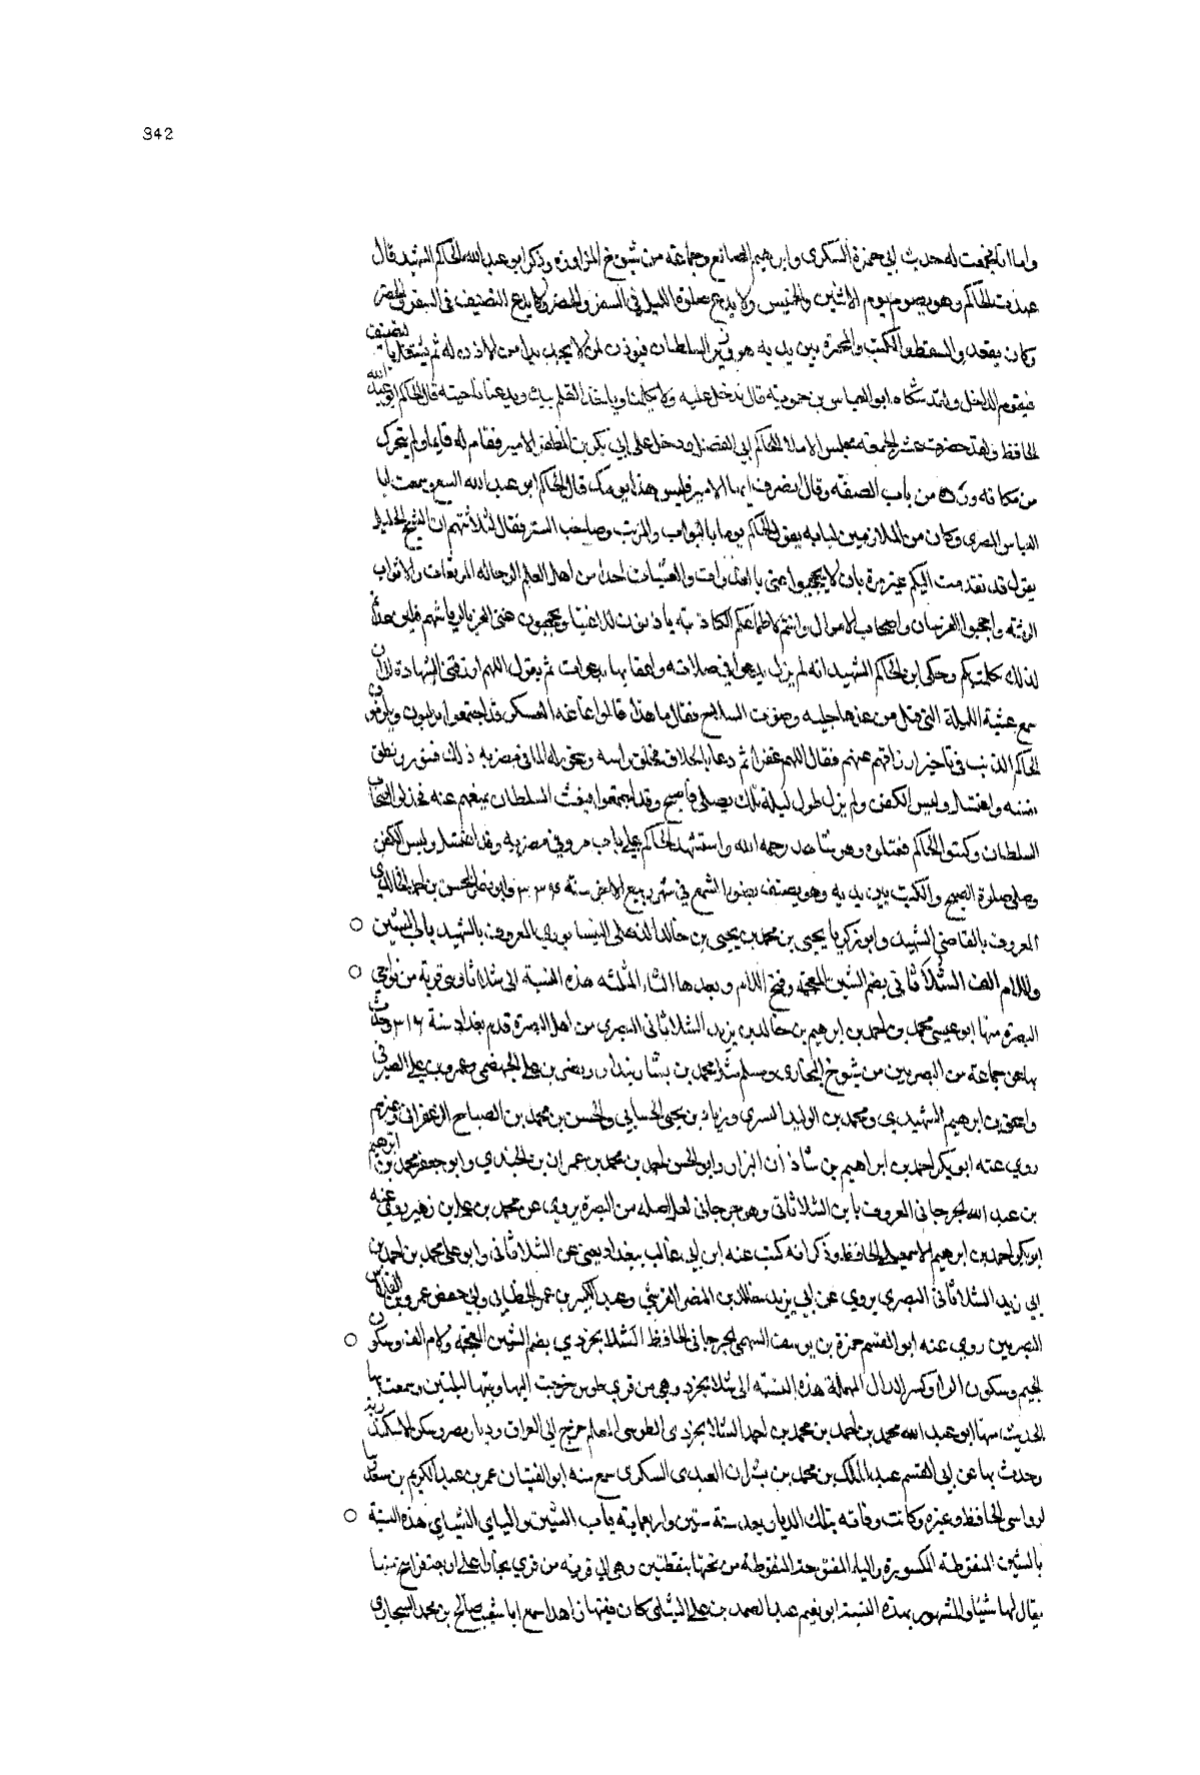 342
واما انا فجمعت له حديث ابي حمزة السكرى وابرهيم الصائغ وجماعة من شيوخ المراوزه وذكر ابو عبد الله الحاكم الشهيد قال
عهدت الحاكم وهو يصوم يوم الاثنين والخميس ولا يدع صلوة الليل في السفر والحضر ولا يدع التصنيف في السفر والحضر
وكان يقعد والسفط والكتب والمحبرة بين يديه هو وزير السلطان فيوذن لمن لا يجد بدا من الاذن له ثم يشتغل بالتصنيف
فيقوم الداخل ولقد شكاه ابو العباس بن حمويه قال ندخل عليه ولا يكلمنا وياخذ القلم بيده ويدعنا ناحيته قال الحاكم ابو عبد الله
الحافظ ولقد حضرت عشر الجمعة مجلس الاملا للحاكم ابي الفضل ودخل على ابي بكر بن المظفر الامير فقام له قايما ولم يتحرك
من مكانه ورده من باب الصفه وقال انصرف ايها الامير فليس هذا يومك قال الحاكم ابو عبد الله السمع سمعت ابا
العباس المصرى وكان من الملازمين لبابه يقول الحاكم يوما بالبواب والمرتب وصاحب الستر فقال لثلاثتهم ان الشيخ الجليل
يقول قد تقدمت اليكم غير مرة بان لا يحجبوا عنى بالغدوات والعشيات احدا من اهل العلم الرحاله المرقعات والاثواب
الرثه واحجبوا الفرسان واصحاب الاموال وانتم لاطماعكم الكاذبه ياذنون للاغنيا ويحجبون عنى الغربا لرثاثتهم فليس هذا
لذلك كلمتكم وحكى ابن الحاكم الشهيد انه لم يزل يدعوا في صلاته واعقابها بدعوات ثم يقول اللهم ارزقني الشهادة الى ان
سمع عشية الليلة التى قتل من غدها جلبه وصوت السلاح فقال ما هذا قالوا غاغه العسكر قد اجتمعوا يولبون ويلزمون
الحاكم الذنب في تاخير ارزاقهم عنهم فقال اللهم غفرا ثم دعا بالحلاق فحلق راسه وسخن له الما في مضربه ذلك فتنور ونظف
نفسه واغتسل ولبس الكفن ولم يزل طول ليلة تلك يصلى فاصبح وقد اجتمعوا فبعث السلطان يمنعهم عنه فخذلوا اصحاب
السلطان وكبسوا الحاكم فقتلوه وهو ساجد رحمه الله واستشهد الحاكم على باب مرو في مضربه وقد اغتسل ولبس الكفن
وصلى صلوة الصبح والكتب بين يديه وهو يصنف بضوء الشمع في شهر ربيع الاخر سنة ٣٣٤ وابو نصر المحسن بن احمد الخالدي
المعروف بالقاضي الشهيد وابو زكريا يحيى بن محمد بن يحيى بن خالد الذهلى النيسابوري المعروف بالشهيد باب الشين ○
واللام الف الشلاثاني بضم الشين المعجمه وفتح اللام وبعدها الثاء المثلثه هذه النسبة الى شلاثا وهى قرية من نواحي ○
البصرة منها ابو عيسى محمد بن احمد بن ابرهيم بن خالد بن يزيد الشلاثانى البصري من اهل البصرة قدم بغداد سنة ٣١٦ وحدث
بها عن جماعة من البصريين من شيوخ البخاري ومسلم مثل محمد بن بشار بندار ونصر بن على الجهضمى وعمرو بن على الصيرفي
واسحق بن ابرهيم الشهيدي ومحمد بن الوليد البسرى وزياد بن يحيى الحسابي والحسن بن محمد بن الصباح الزعفرانى وغيرهم
روي عنه ابو بكر احمد بن ابراهيم بن شاذان البزار وابو الحسن احمد بن محمد بن عمران بن الجندي وابو جعفر محمد بن ابرهيم
بن عبد الله الجرجانى المعروف بابن الشلاثاثى وهو جرجانى لعل اصله من البصرة يروي عن محمد بن على بن زهير روي عنه
ابو بكر احمد بن ابرهيم الاسمعيلى الحافظ وذكر انه كتب عنه ابن ابي غالب ببغداد يعنى عن الشلاثانى وابو على محمد بن احمد بن
ابي زيد الشلاثانى البصري يروي عن ابي يزيد خالد بن النضر القرشى وعبد الكبير بن عمر الخطابى وابي حفص عمرو بن الفلاس
البصريين روي عنه ابو القسم حمزة بن يوسف السهمى الجرجانى الحافظ الشلانجردي بضم الشين المعجمه ولام الف وسكون ○
الجيم وسكون الرا وكسر الدال المهملة هذه النسبة الى شلانجرد وهى من قري طوس خرجت اليها وبتها ليلتين وسمعت بها
الحديث منها ابو عبد الله محمد بن احمد بن محمد بن احمد الشلانجردى الطوسى امام خرج الى العراق وديار مصر وسكن الاسكندرية
وحدث بها عن ابي القسم عبد الملك بن محمد بن بشران العبدى السكرى سمع منه ابو الفتيان عمر بن عبد الكريم بن سعدويه
الرواسى الحافظ وغيره وكانت وفاته بتلك الديار بعد سنة ستين واربعمايه باب الشين والياي الشياي هذه النسبة ○
بالشين المنقوطه المكسورة والياء المفتوحه المنقوطه من تحتها بنقطتين وهى الى قرية من قري بخارا على اربعة فراسخ منها
يقال لها شيا والمشهور بهذه النسبة ابو نعيم عبد الصمد بن على الشياى كان فقيها زاهدا سمع ابا شعيب صالح بن محمد السجاري